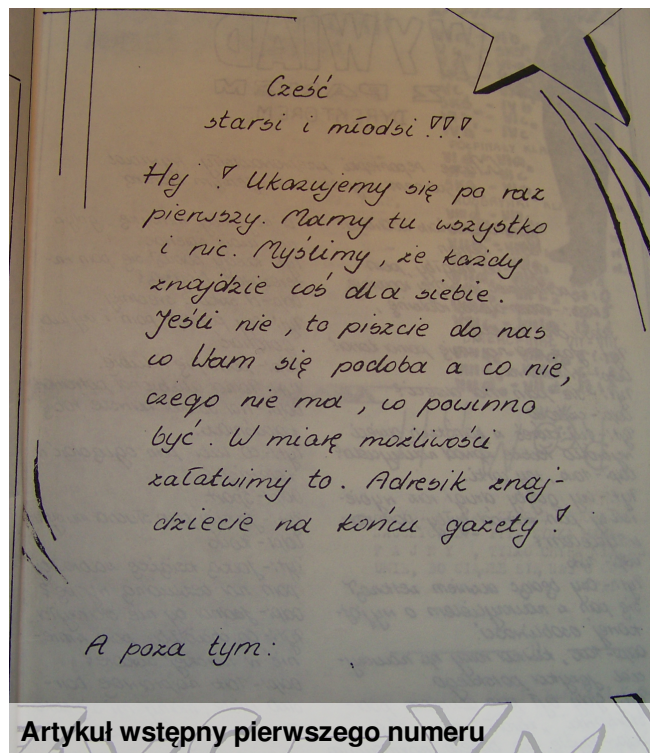 Cześć
starsi i młodsi!!!
Hej! Ukazujemy się po raz
pierwszy. Mamy tu wszystko
i nic. Myślimy, że każdy
znajdzie coś dla siebie.
Jeśli nie, to piszcie do nas
co Wam się podoba a co nie,
czego nie ma, co powinno
być. W miarę możliwości
załatwimy to. Adresik znaj-
dziecie na końcu gazety!
A poza tym:
Artykuł wstępny pierwszego numeru